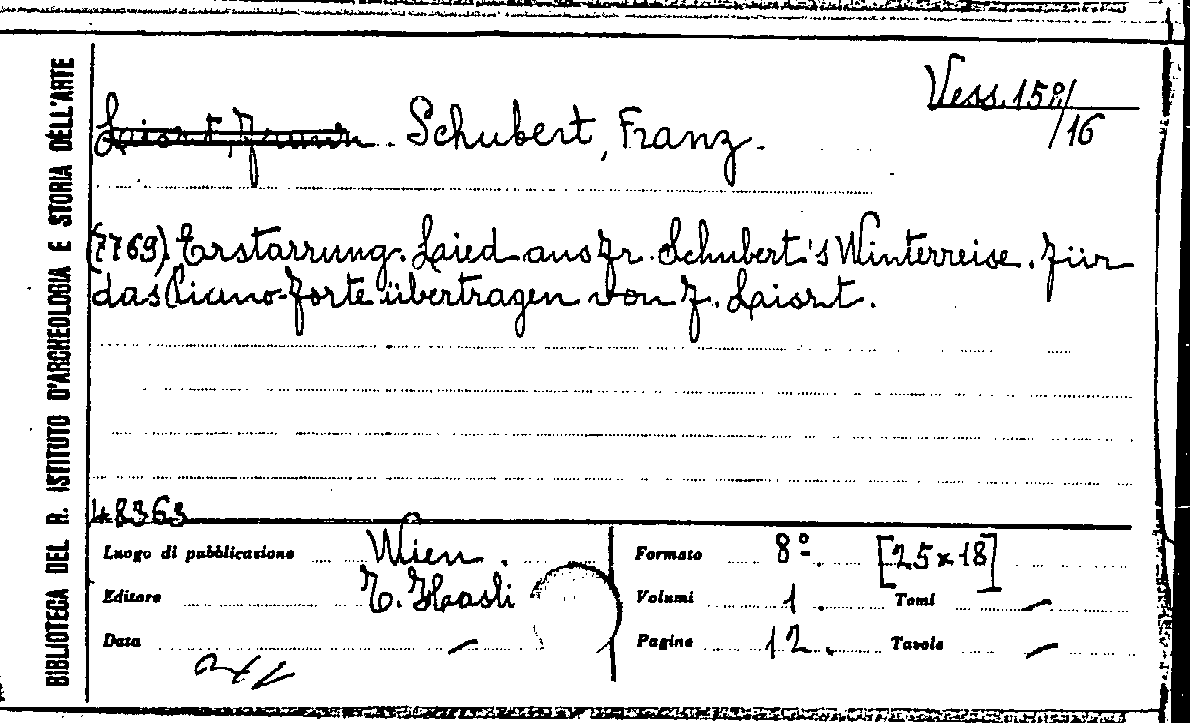 BIBLIOTECA DEL R. ISTITUTO D'ARCHEOLOGIA E STORIA DELL'ARTE
Vess. 158/
/16
Schubert, Franz.
(7769) Erstarrung. Laied aus Fr. Schubert's Winterreise. Für
das Piano-forte übertragen von F. Laiszt.
48363
Luogo di pubblicazione Wien.
Editore
Data –
Formato 8°. [25 x 18]
Volumi 1. Tomi –
Pagine 12. Tavole –